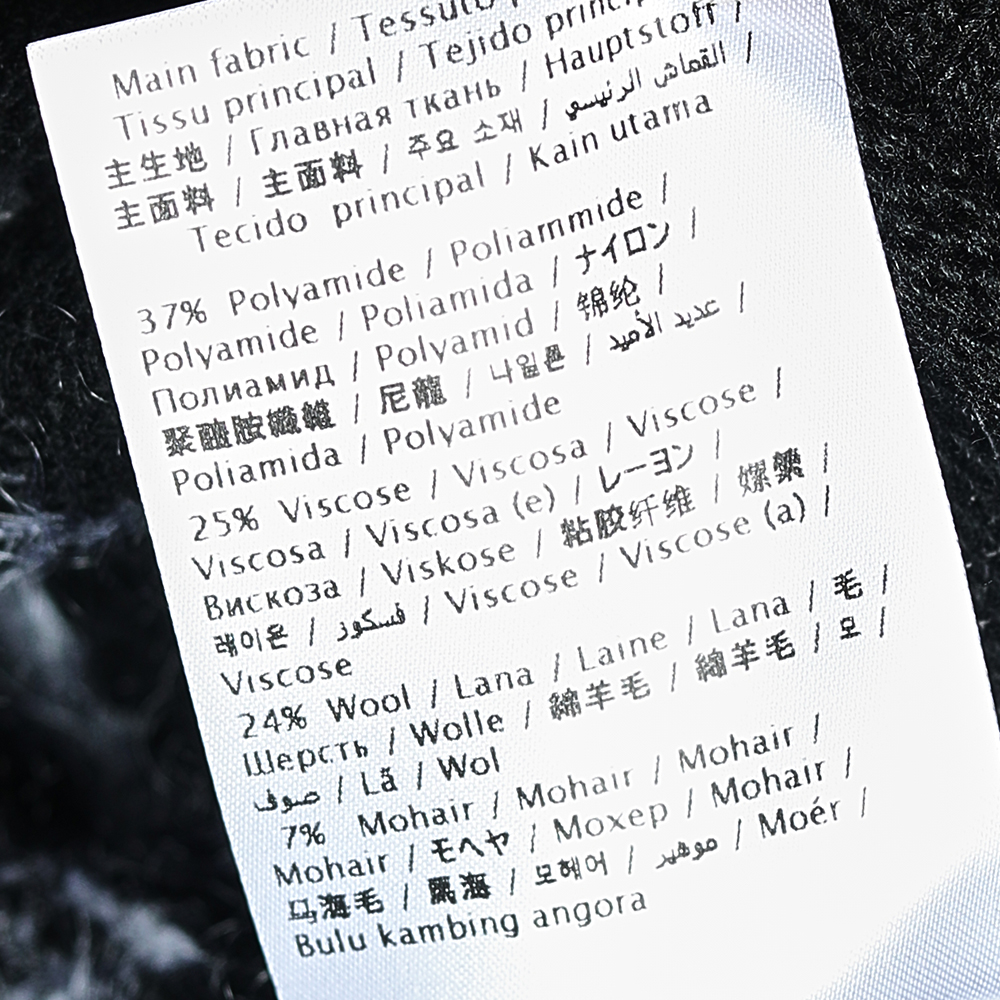 Main fabric / Tessuto
Tissu principal / Tejido princip
主生地 / Главная ткань / Hauptstoff /
主面料 / 主面料 / 주요 소재 / القماش الرئيسي /
Tecido principal / Kain utama
37% Polyamide / Poliammide /
Polyamide / Poliamida / ナイロン /
Полиамид / Polyamid / 锦纶 /
聚醯胺纖維 / 尼龍 / 나일론 / عديد الأميد /
Poliamida / Polyamide
25% Viscose / Viscosa / Viscose /
Viscosa / Viscosa (e) / レーヨン /
Вискоза / Viskose / 粘胶纤维 / 嫘縈 /
레이온 / فسكوز / Viscose / Viscose (a) /
Viscose
24% Wool / Lana / Laine / Lana / 毛 /
Шерсть / Wolle / 綿羊毛 / 綿羊毛 / 모 /
صوف / Lã / Wol
7% Mohair / Mohair / Mohair /
Mohair / モヘヤ / Мохер / Mohair /
马海毛 / 馬海 / 모헤어 / موهير / Moér /
Bulu kambing angora